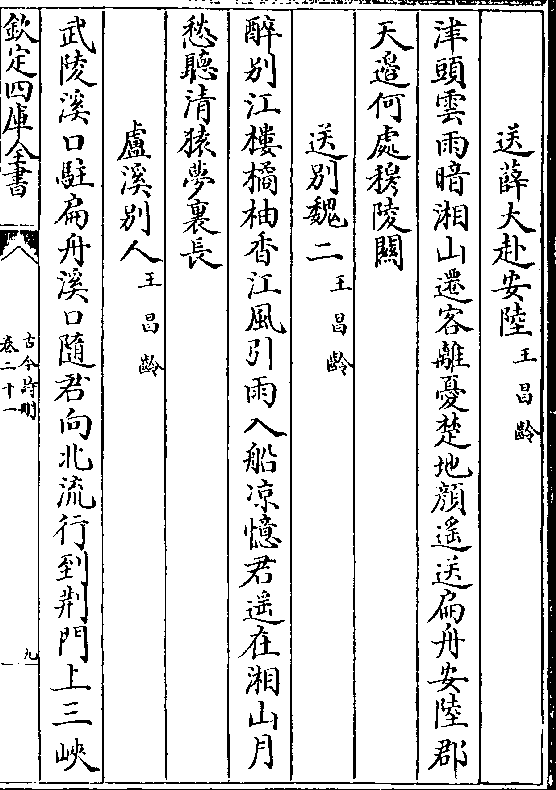 送薛大赴安陸 王昌齡
津頭雲雨暗湘山遷客離憂楚地顔遥送扁舟安陸郡
天邉何處穆陵關
送别魏二 王昌齡
醉别江樓橘柚香江風引雨入船凉憶君遥在湘山月
愁聽清猿夢裏長
盧溪别人 王昌齡
武陵溪口駐扁舟溪口隨君向北流行到荆門上三峽
欽定四庫全書
古今詩刪
卷二十一
九